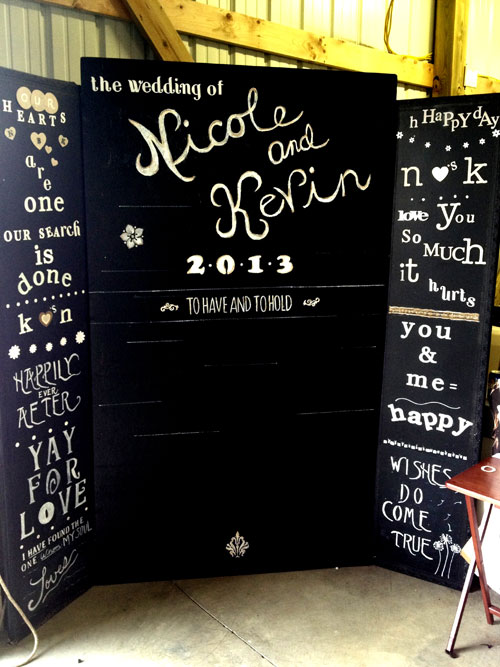 OUR
HEARTS
are
one
OUR SEARCH
is
done
k n
HAPPILY
EVER
AFTER
YAY
FOR
LOVE
I HAVE FOUND THE
ONE Whom MY SOUL
Loves
the wedding of
Nicole
and
Kevin
2·0·1·3
TO HAVE AND TO HOLD
h HAPPY dAY
n ♥'s k
love you
So MUCH
it hurts
you
&
me =
happy
WISHES
DO
COME
TRUE